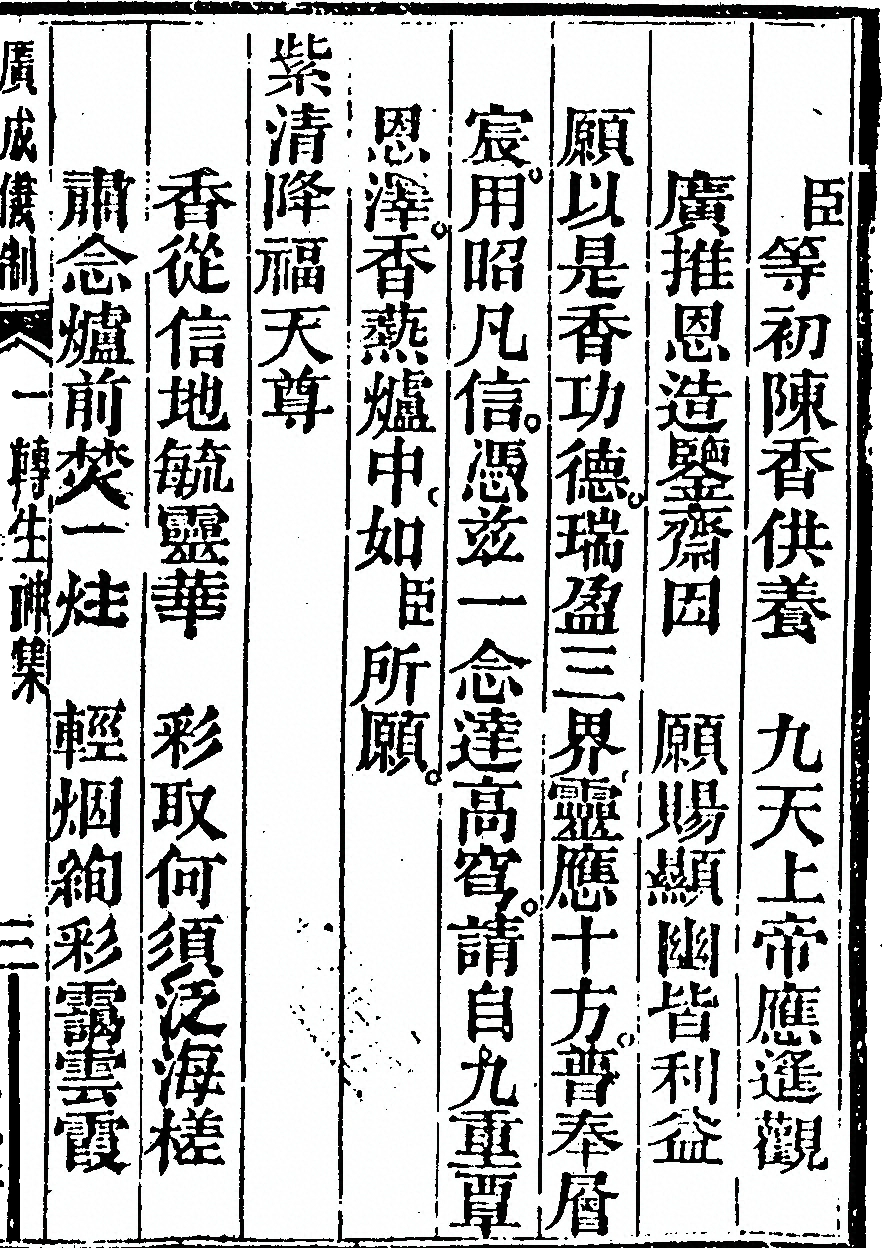 臣等初陳香供養　九天上帝應遙觀
廣推恩造鑒齋因　願賜顯幽皆利益
願以是香功德。瑞盈三界。靈應十方。普奉層
宸。用昭凡信。憑玆一念達高穹。請自九重覃
恩澤。香爇爐中。如臣所願。
紫清降福天尊
香從信地毓靈華　彩取何須泛海槎
肅念爐前焚一炷　輕烟絢彩靄雲霞
廣成儀制　一轉生神集　三